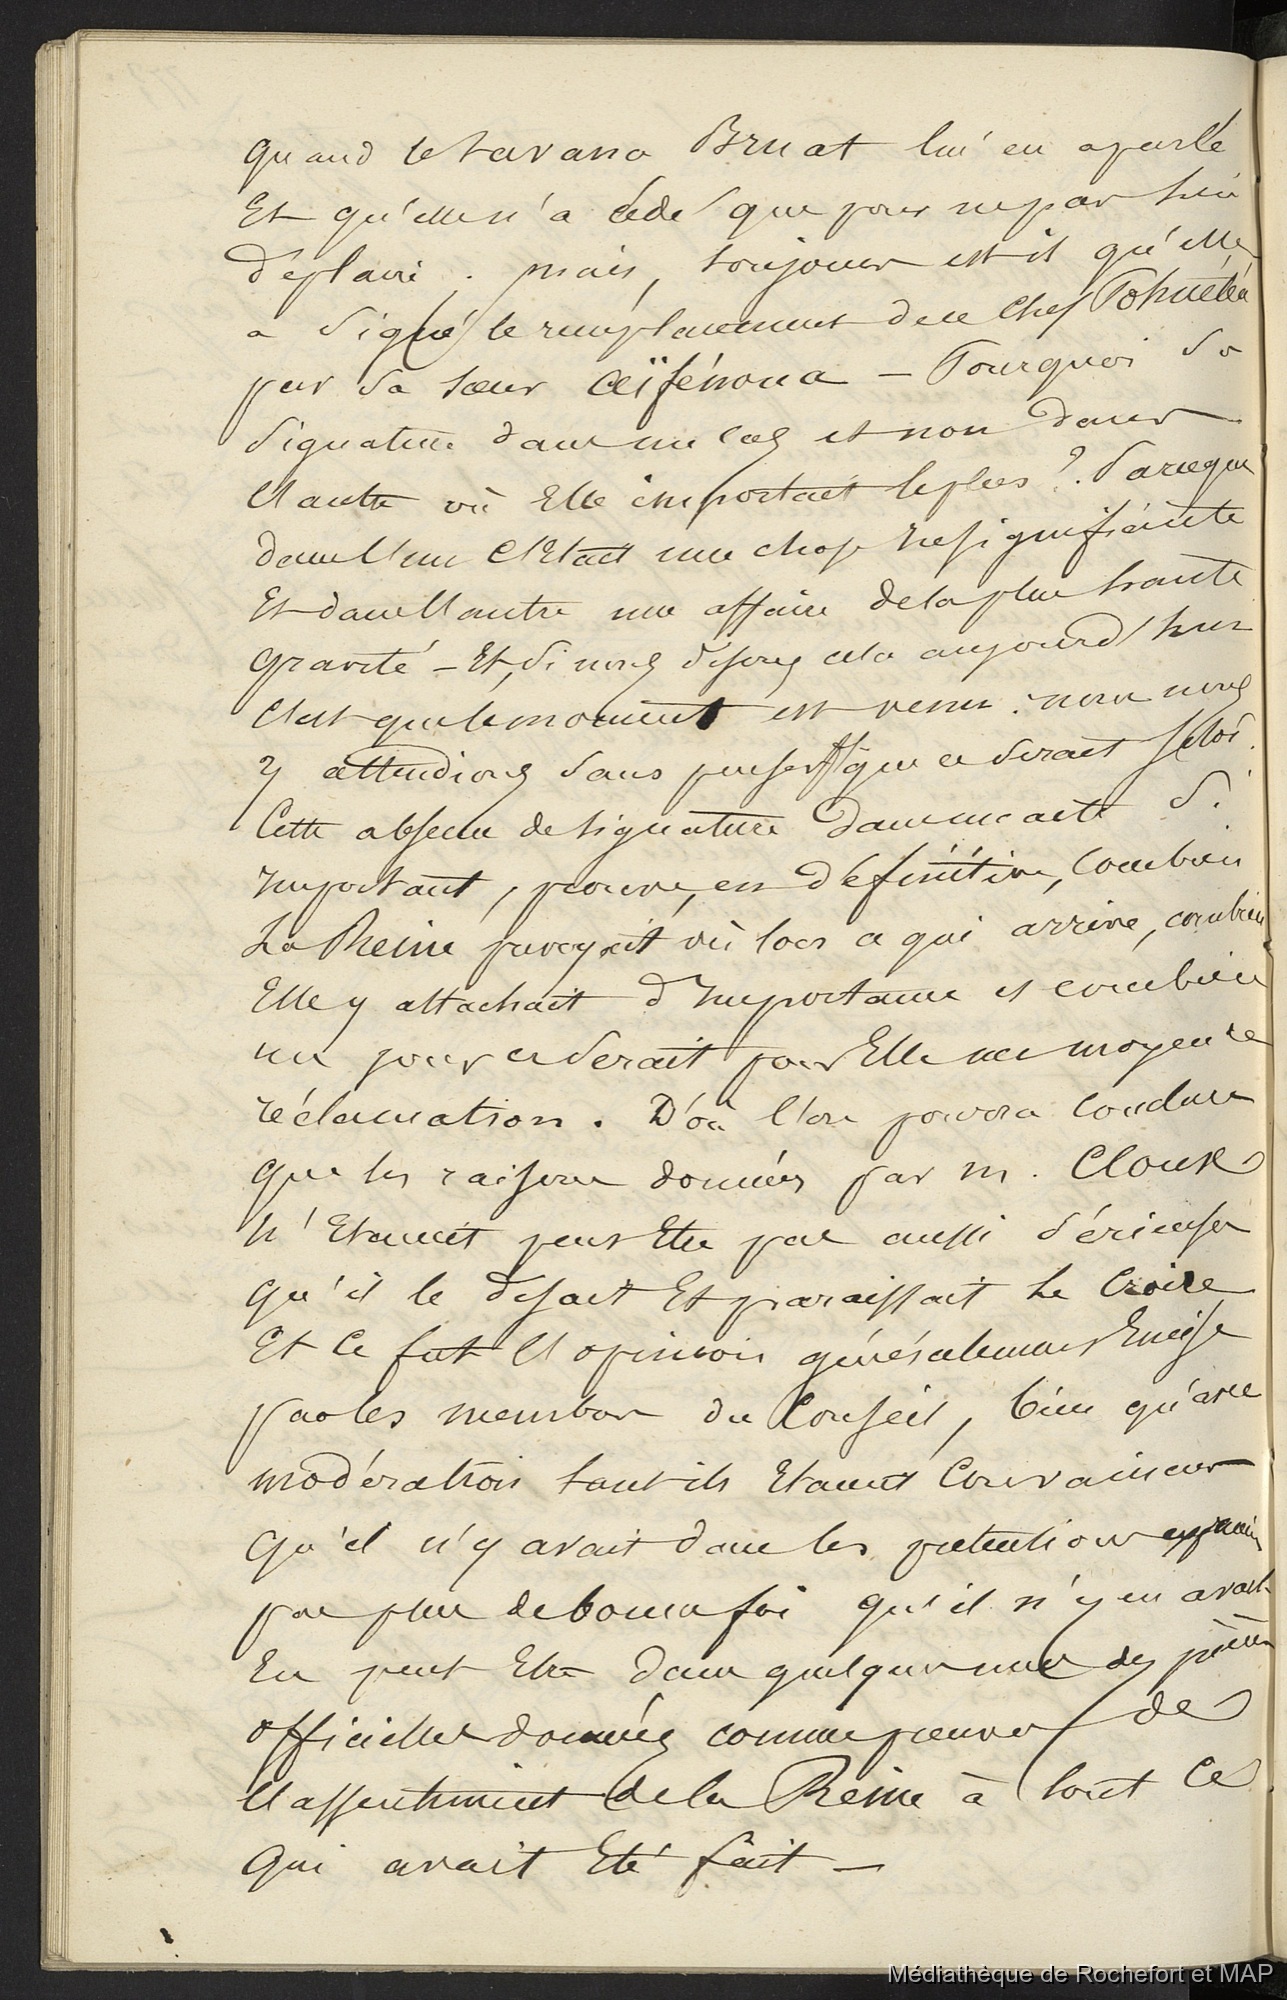 quand le tavana Bruat lui en a parlé
Et qu'elle n'a cédé que pour ne pas lui
déplaire. mais, toujours est-il qu'elle
a signé le remplacement de ce chef
par sa sœur - Pourquoi sa
signature dans un cas et non dans
l'autre où Elle importait le plus ? Parceque
dans l'un C'Etait une chose insignifiante
Et dans l'autre une affaire de la plus haute
gravité - Et, si nous disons cela aujourd'hui
C'est que le moment est venu. nous nous
y attendions sans penser que ce serait si tôt.
Cette absence de signature dans un acte si
important, prouve, en définitive, combien
La Reine prévoyait dès lors ce qui arrive, combien
Elle y attachait d'importance et combien
un jour ce serait pour Elle un moyen de
réclamation. D'où l'on pouvora conclure
que les raisons données par m. Clouk
n'Etaient peut Etre pas aussi sérieuses
qu'il le disait Et paraissait le Croire,
Et Ce fut l'opinion généralement Emise
par les membres du Conseil, bien qu'avec
modération tant ils Etaient Convaincus
qu'il n'y avait dans les prétentions
pas plus de bonne foi qu'il n'y en avait
En peut Etre dans quelques unes des pièces
officielles données comme preuves de
l'assentiment de la Reine à tout Ce
qui avait Eté fait -
Médiathèque de Rochefort et MAP